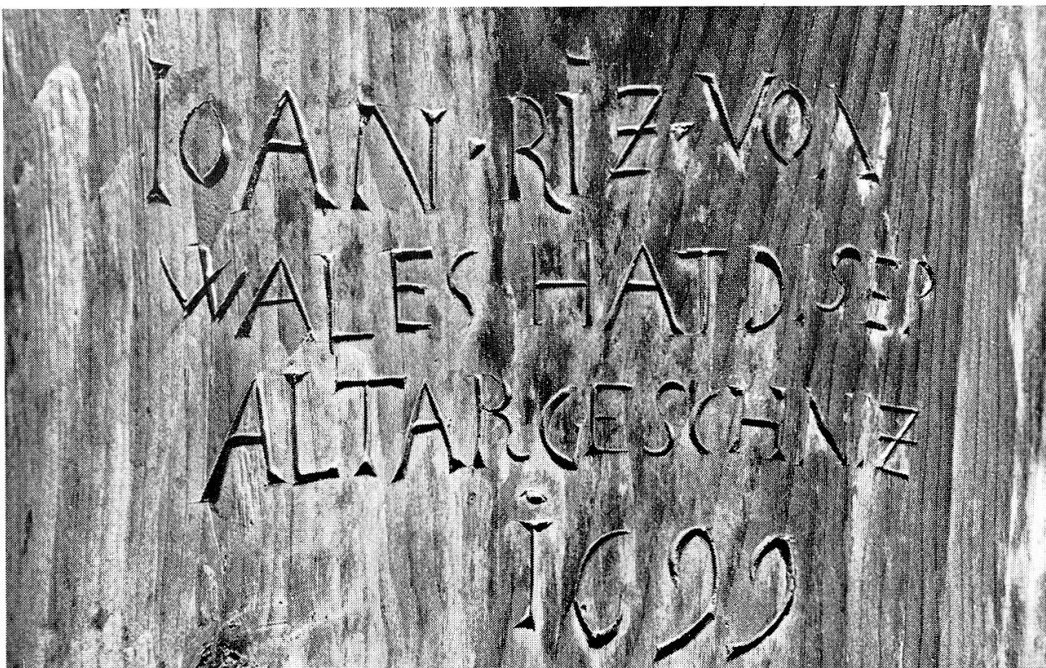 IOAN·RIZ·VON
WALES HAT DISEP
ALTAR GESCHNIZ
1699